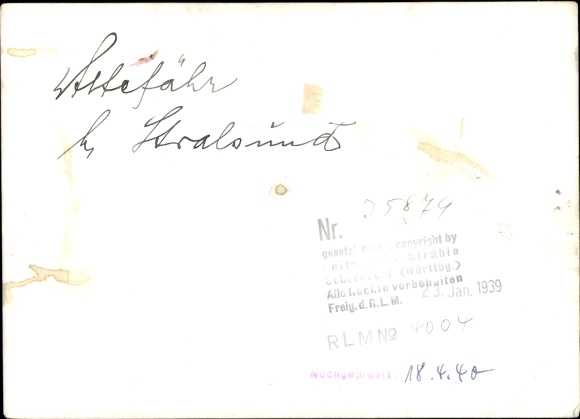 Altefähr
b, Stralsund
Nr. 35879
gesetzl. copyright by
Strähle
(Württbg.)
Alle Rechte vorbehalten
Freig. d. R.L.M. 23. Jan. 1939
RLM No 4004
Nachgeprüft: 18.4.40